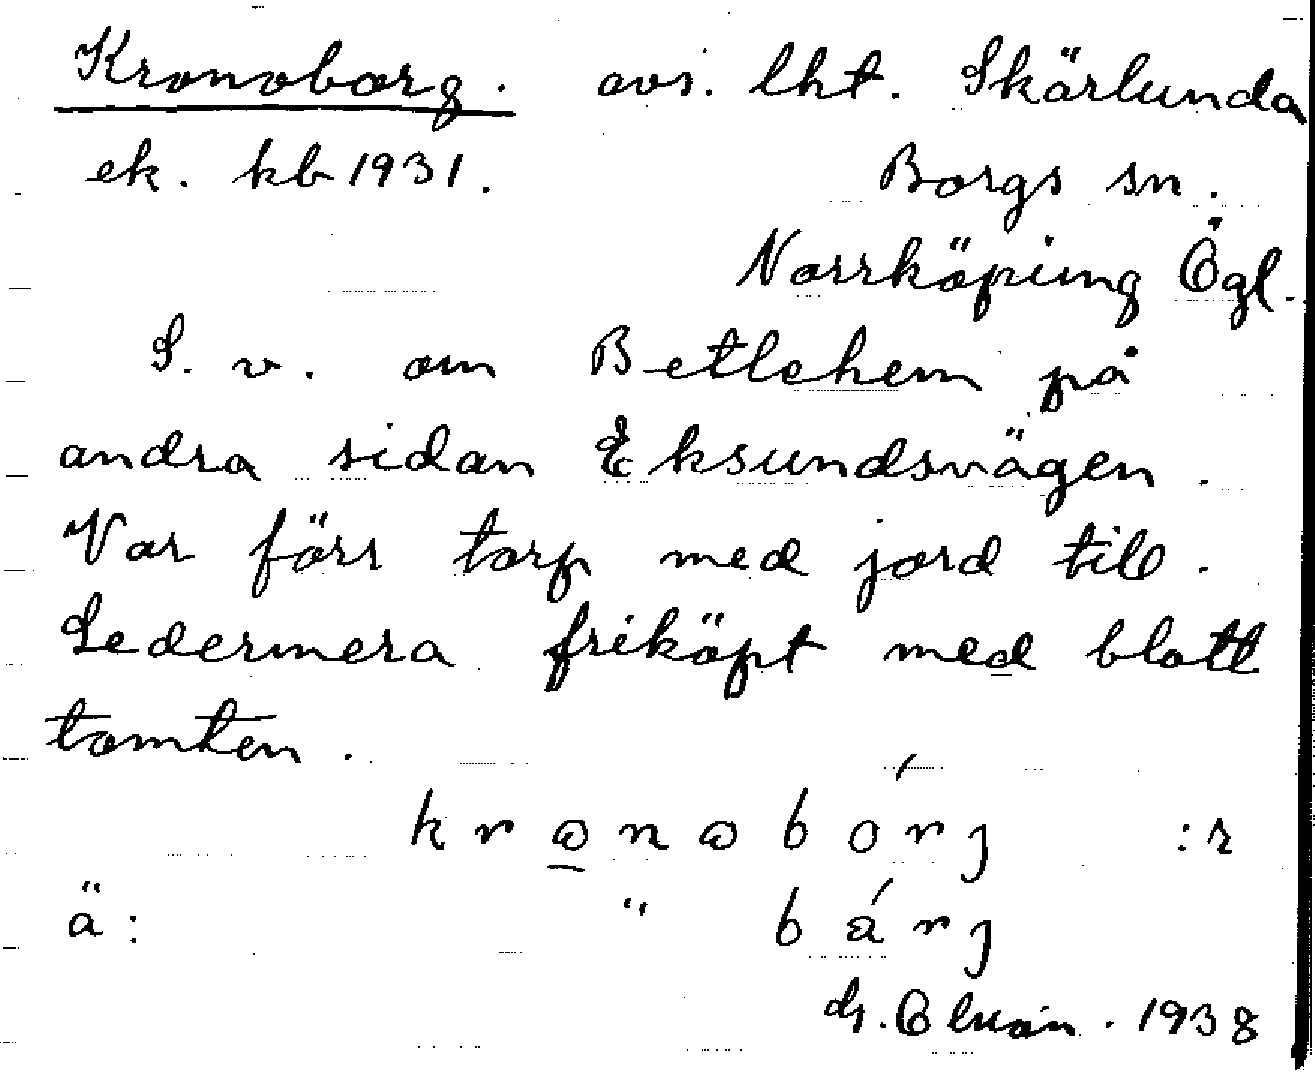 Kronoborg. avs. lht. Skärlunda
ek. kb 1931. Borgs sn.
Norrköping Ögl.
S. v. om Betlehem på
andra sidan Eksundsvägen.
Var förr torp med jord till.
Sedermera friköpt med blott
tomten.
krωnωbórj :r
ä: " bárj
1938